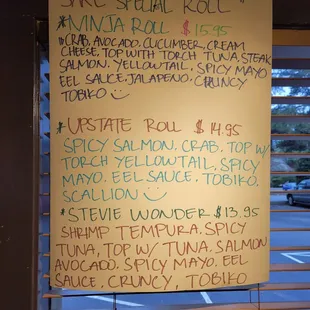 SAKE SPECIAL ROLL "
*NINJA ROLL $15.95
*CRAB, AVOCADO, CUCUMBER, CREAM
CHEESE, TOP WITH TORCH TUNA, STEAK
SALMON, YELLOWTAIL, SPICY MAYO
EEL SAUCE, JALAPENO, CRUNCY
TOBIKO
*UPSTATE ROLL $14.95
SPICY SALMON, CRAB, TOP W/
TORCH YELLOWTAIL, SPICY
MAYO, EEL SAUCE, TOBIKO,
SCALLION
*STEVIE WONDER $13.95
SHRIMP TEMPURA, SPICY
TUNA, TOP W/ TUNA, SALMON
AVOCADO, SPICY MAYO, EEL
SAUCE, CRUNCY, TOBIKO